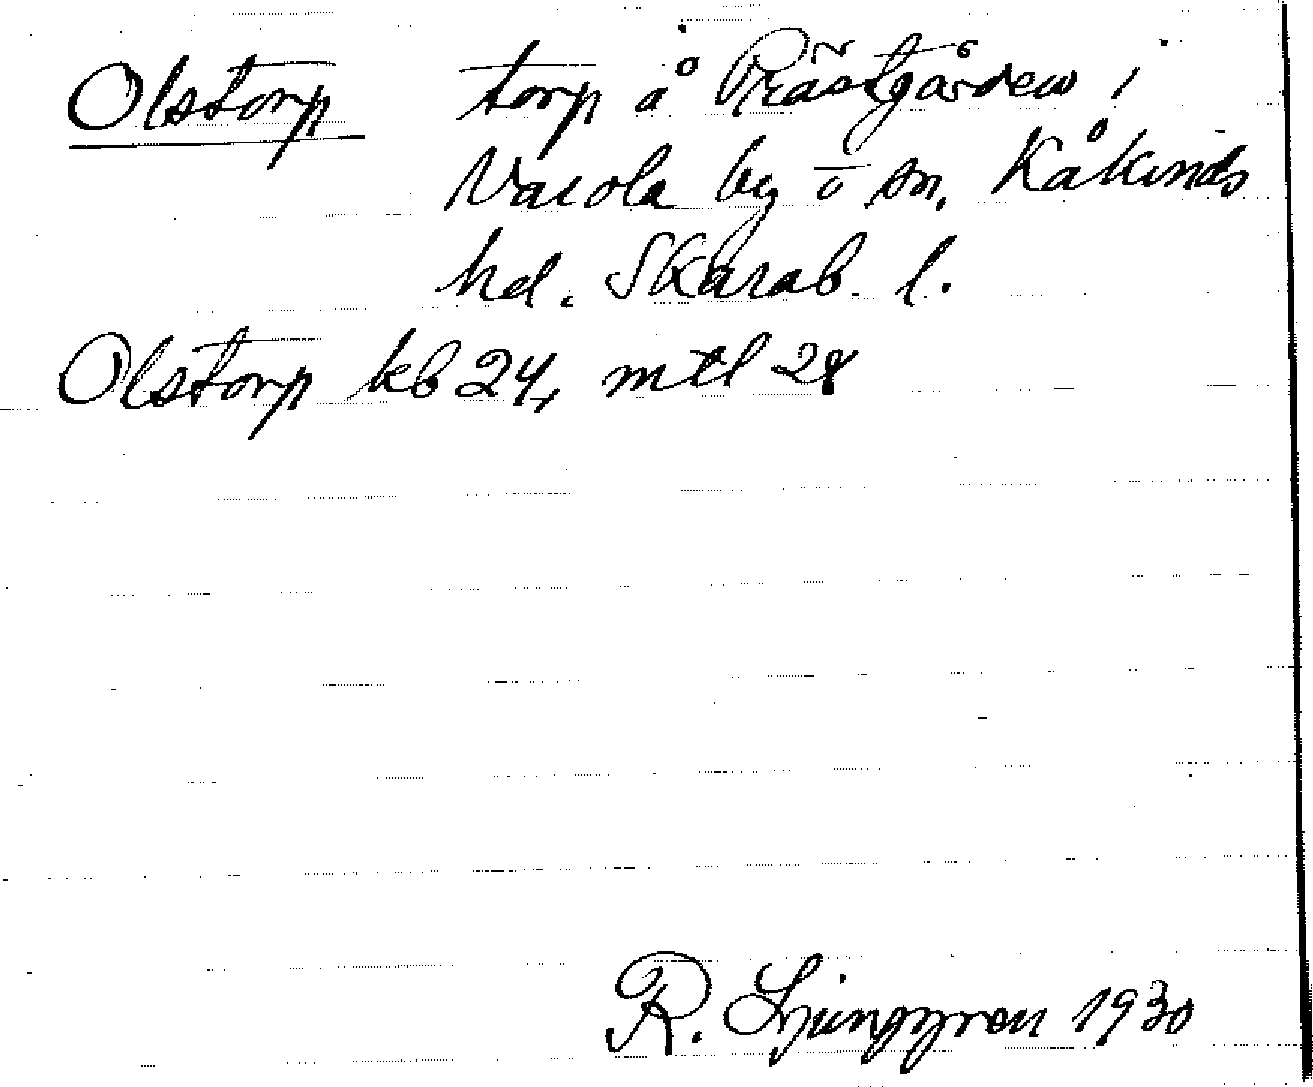 Olstorp torp å Prästgården i
Varola by o sn. Kåkinds
hd. Skarab. l.
Olstorp kb 24, mtl 28
R. Ljunggren 1930